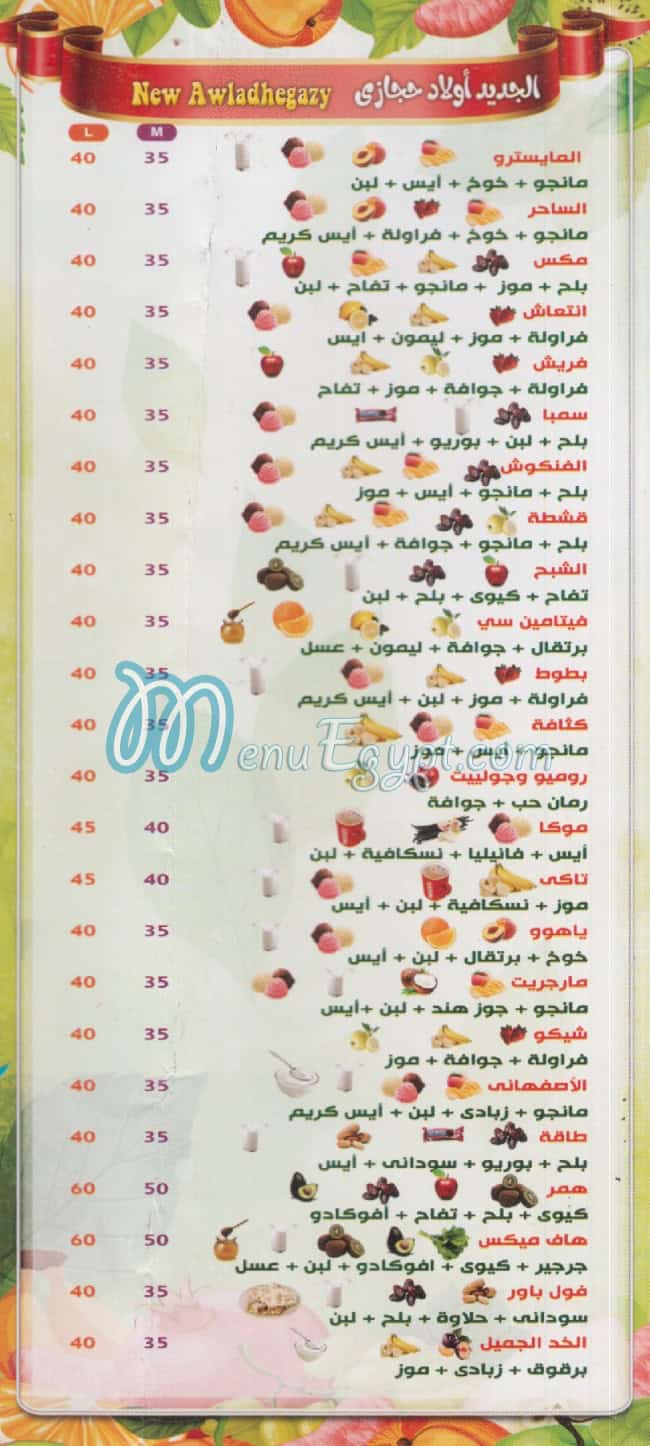 الجديد أولاد حجازى New Awladhegazy
M L
المايسترو 35 40
مانجو + خوخ + أيس + لبن
الساحر 35 40
مانجو + خوخ + فراولة + أيس كريم
مكس 35 40
بلح + موز + مانجو + تفاح + لبن
انتعاش 35 40
فراولة + موز + ليمون + ايس
فريش 35 40
فراولة + جوافة + موز + تفاح
سمبا 35 40
بلح + لبن + بوريو + أيس كريم
الفنكوش 35 40
بلح + مانجو + أيس + موز
قشطة 35 40
بلح + مانجو + جوافة + أيس كريم
الشبح 35 40
تفاح + كيوى + بلح + لبن
فيتامين سي 35 40
برتقال + جوافة + ليمون + عسل
بطوط 35 40
فراولة + موز + لبن + أيس كريم
كثافة 35 40
مانجو + أيس + موز
MenuEgypt.com
روميو وجولييت 35 40
رمان حب + جوافة
موكا 40 45
أيس + فانيليا + نسكافية + لبن
تاكى 40 45
موز + نسكافية + لبن + أيس
ياهوو 35 40
خوخ + برتقال + لبن + أيس
مارجريت 35 40
مانجو + جوز هند + لبن +أيس
شيكو 35 40
فراولة + جوافة + موز
الأصفهانى 35 40
مانجو + زبادى + لبن + أيس كريم
طاقة 35 40
بلح + بوريو + سودانى + أيس
همر 50 60
كيوى + بلح + تفاح + أفوكادو
هاف ميكس 50 60
جرجير + كيوى + افوكادو + لبن + عسل
فول باور 35 40
سودانى + حلاوة + بلح + لبن
الخد الجميل 35 40
برقوق + زبادى + موز